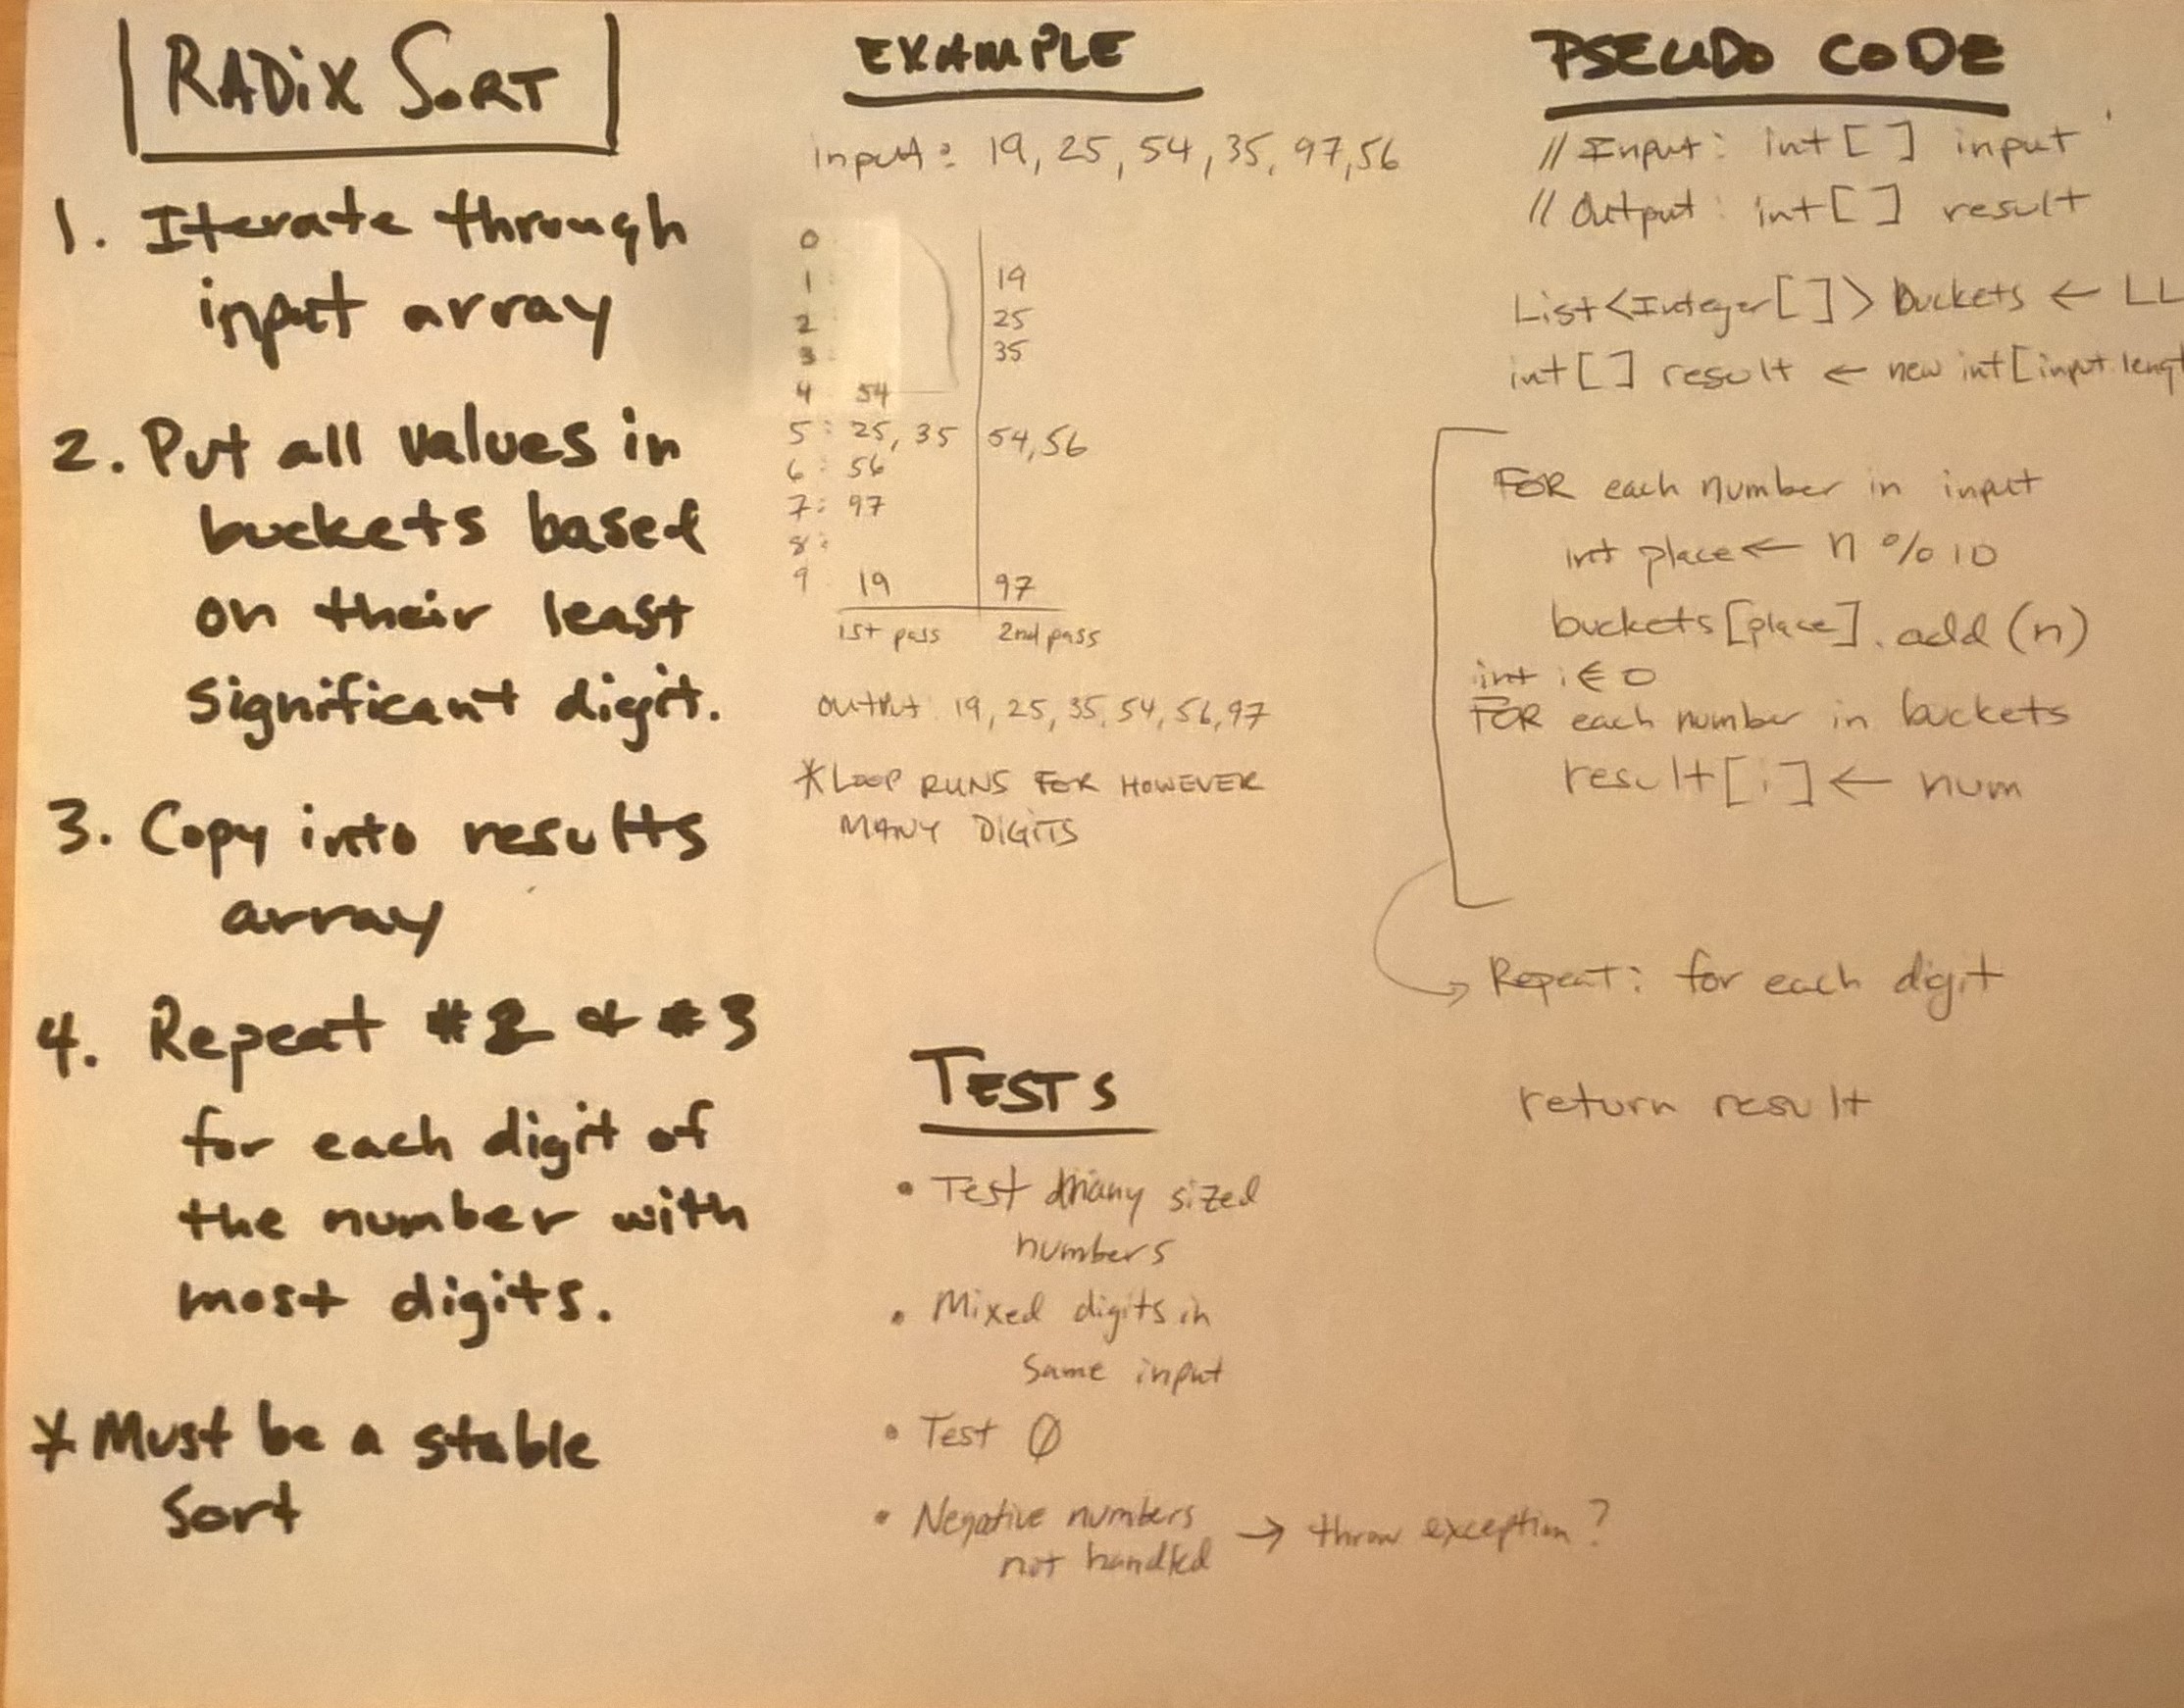 RADIX SORT
1. Iterate through
input array
2. Put all values in
buckets based
on their least
significant digit.
3. Copy into results
array
4. Repeat #2 & #3
for each digit of
the number with
most digits.
* Must be a stable
sort
EXAMPLE
input: 19, 25, 54, 35, 97, 56
0
1 : 19
2 : 25
3 : 35
4 54
5 : 25, 35 54, 56
6 : 56
7 : 97
8 :
9 19 97
1st pass 2nd pass
output: 19, 25, 35, 54, 56, 97
* LOOP RUNS FOR HOWEVER
MANY DIGITS
TESTS
• Test many sized
numbers
• Mixed digits in
same input
• Test Ø
• Negative numbers
not handled → throw exception?
PSEUDO CODE
// Input: int[ ] input
// Output: int[ ] result
List<Integer[ ]> buckets ← LL
int[ ] result ← new int[input.lengt
FOR each number in input
int place ← n % 10
buckets[place].add(n)
int i ← 0
FOR each number in buckets
result[i] ← num
Repeat: for each digit
return result